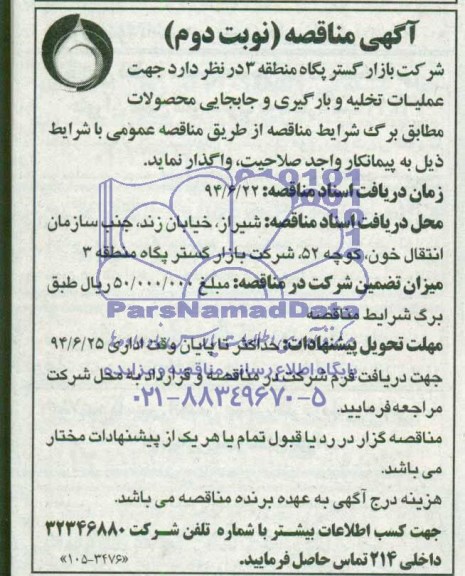 آگهی مناقصه (نوبت دوم)
شرکت بازار گستر پگاه منطقه ۳ در نظر دارد جهت
عملیات تخلیه و بارگیری و جابجایی محصولات
مطابق برگ شرایط مناقصه از طریق مناقصه عمومی با شرایط
ذیل به پیمانکار واجد صلاحیت، واگذار نماید.
زمان دریافت اسناد مناقصه: ۹۴/۶/۲۲
محل دریافت اسناد مناقصه: شیراز، خیابان زند، جنب سازمان
انتقال خون، کوچه ۵۲، شرکت بازار گستر پگاه منطقه ۳
میزان تضمین شرکت در مناقصه: مبلغ ۵۰/۰۰۰/۰۰۰ ریال طبق
برگ شرایط مناقصه
ParsNamadData
مهلت تحویل پیشنهادات: حداکثر تا پایان وقت اداری ۹۴/۶/۲۵
جهت دریافت فرم شرکت در مناقصه و قرارداد به محل شرکت
پایگاه اطلاع رسانی مناقصه و مزایده
مراجعه فرمایید.
۰۲۱-۸۸۳۴۹۶۷۰-۵
مناقصه گزار در رد یا قبول تمام یا هر یک از پیشنهادات مختار
می باشد.
هزینه درج آگهی به عهده برنده مناقصه می باشد.
جهت کسب اطلاعات بیشتر با شماره تلفن شرکت ۳۲۳۴۶۸۸۰
داخلی ۲۱۴ تماس حاصل فرمایید.
«۱۰۵-۳۴۷۶»